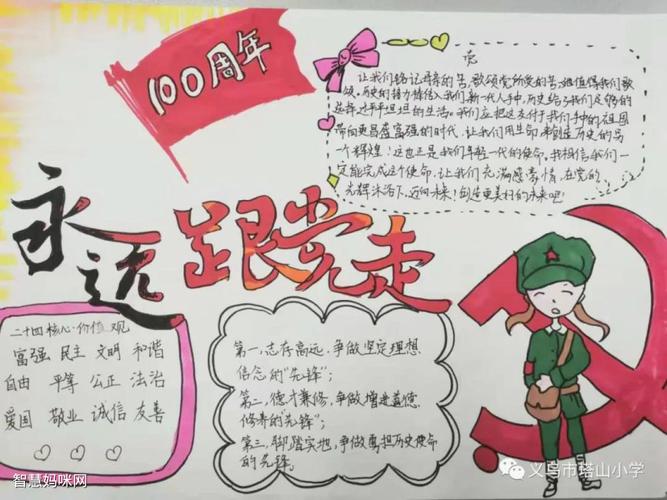 100周年
永远跟党走
党
让我们铭记革命的苦,歌颂党所受的苦,
历史的接力棒传入我们新一代人手中,历史给予我们足够的
选择过平平坦坦的生活。我们应把这交付于我们手中的祖国
带向更昌盛富强的时代,让我们用生命来创造历史的另
一个辉煌!这也正是我们年轻一代的使命,我相信我们一
定能完成这个使命,让我们充满感豪情,在党的
光辉沐浴下,迈向未来!创造更美好的未来吧!
二十四核心·价值 观
富强 民主 文明 和谐
自由 平等 公正 法治
爱国 敬业 诚信 友善
第一,志存高远,争做坚定理想
信念的“先锋”;
第二,德才兼修,争做增进道德
修养的“先锋”;
第三,脚踏实地,争做勇担历史使命
的先锋。
智慧妈咪网
义乌市塔山小学